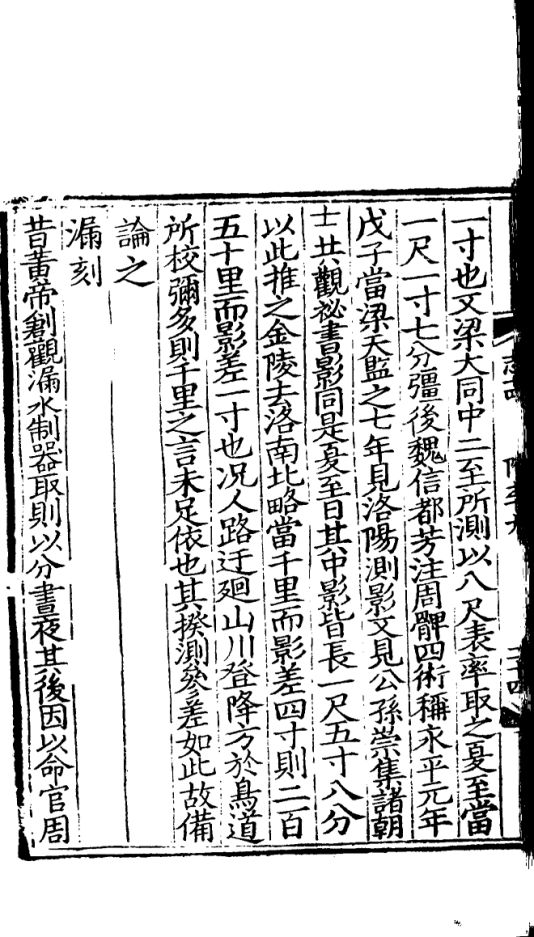 一寸也又梁大同中二至所測以八尺表率取之夏至當
一尺一寸七分彊後魏信都芳注周髀四術稱永平元年
戊子當梁天監之七年見洛陽測影又見公孫崇集諸朝
士共觀祕書影同是夏至日其中影皆長一尺五寸八分
以此推之金陵去洛南北略當千里而影差四寸則二百
五十里而影差一寸也况人路迂廻山川登降方於鳥道
所校彌多則千里之言未足依也其揆測參差如此故備
論之
漏刻
昔黃帝創觀漏水制器取則以分晝夜其後因以命官周